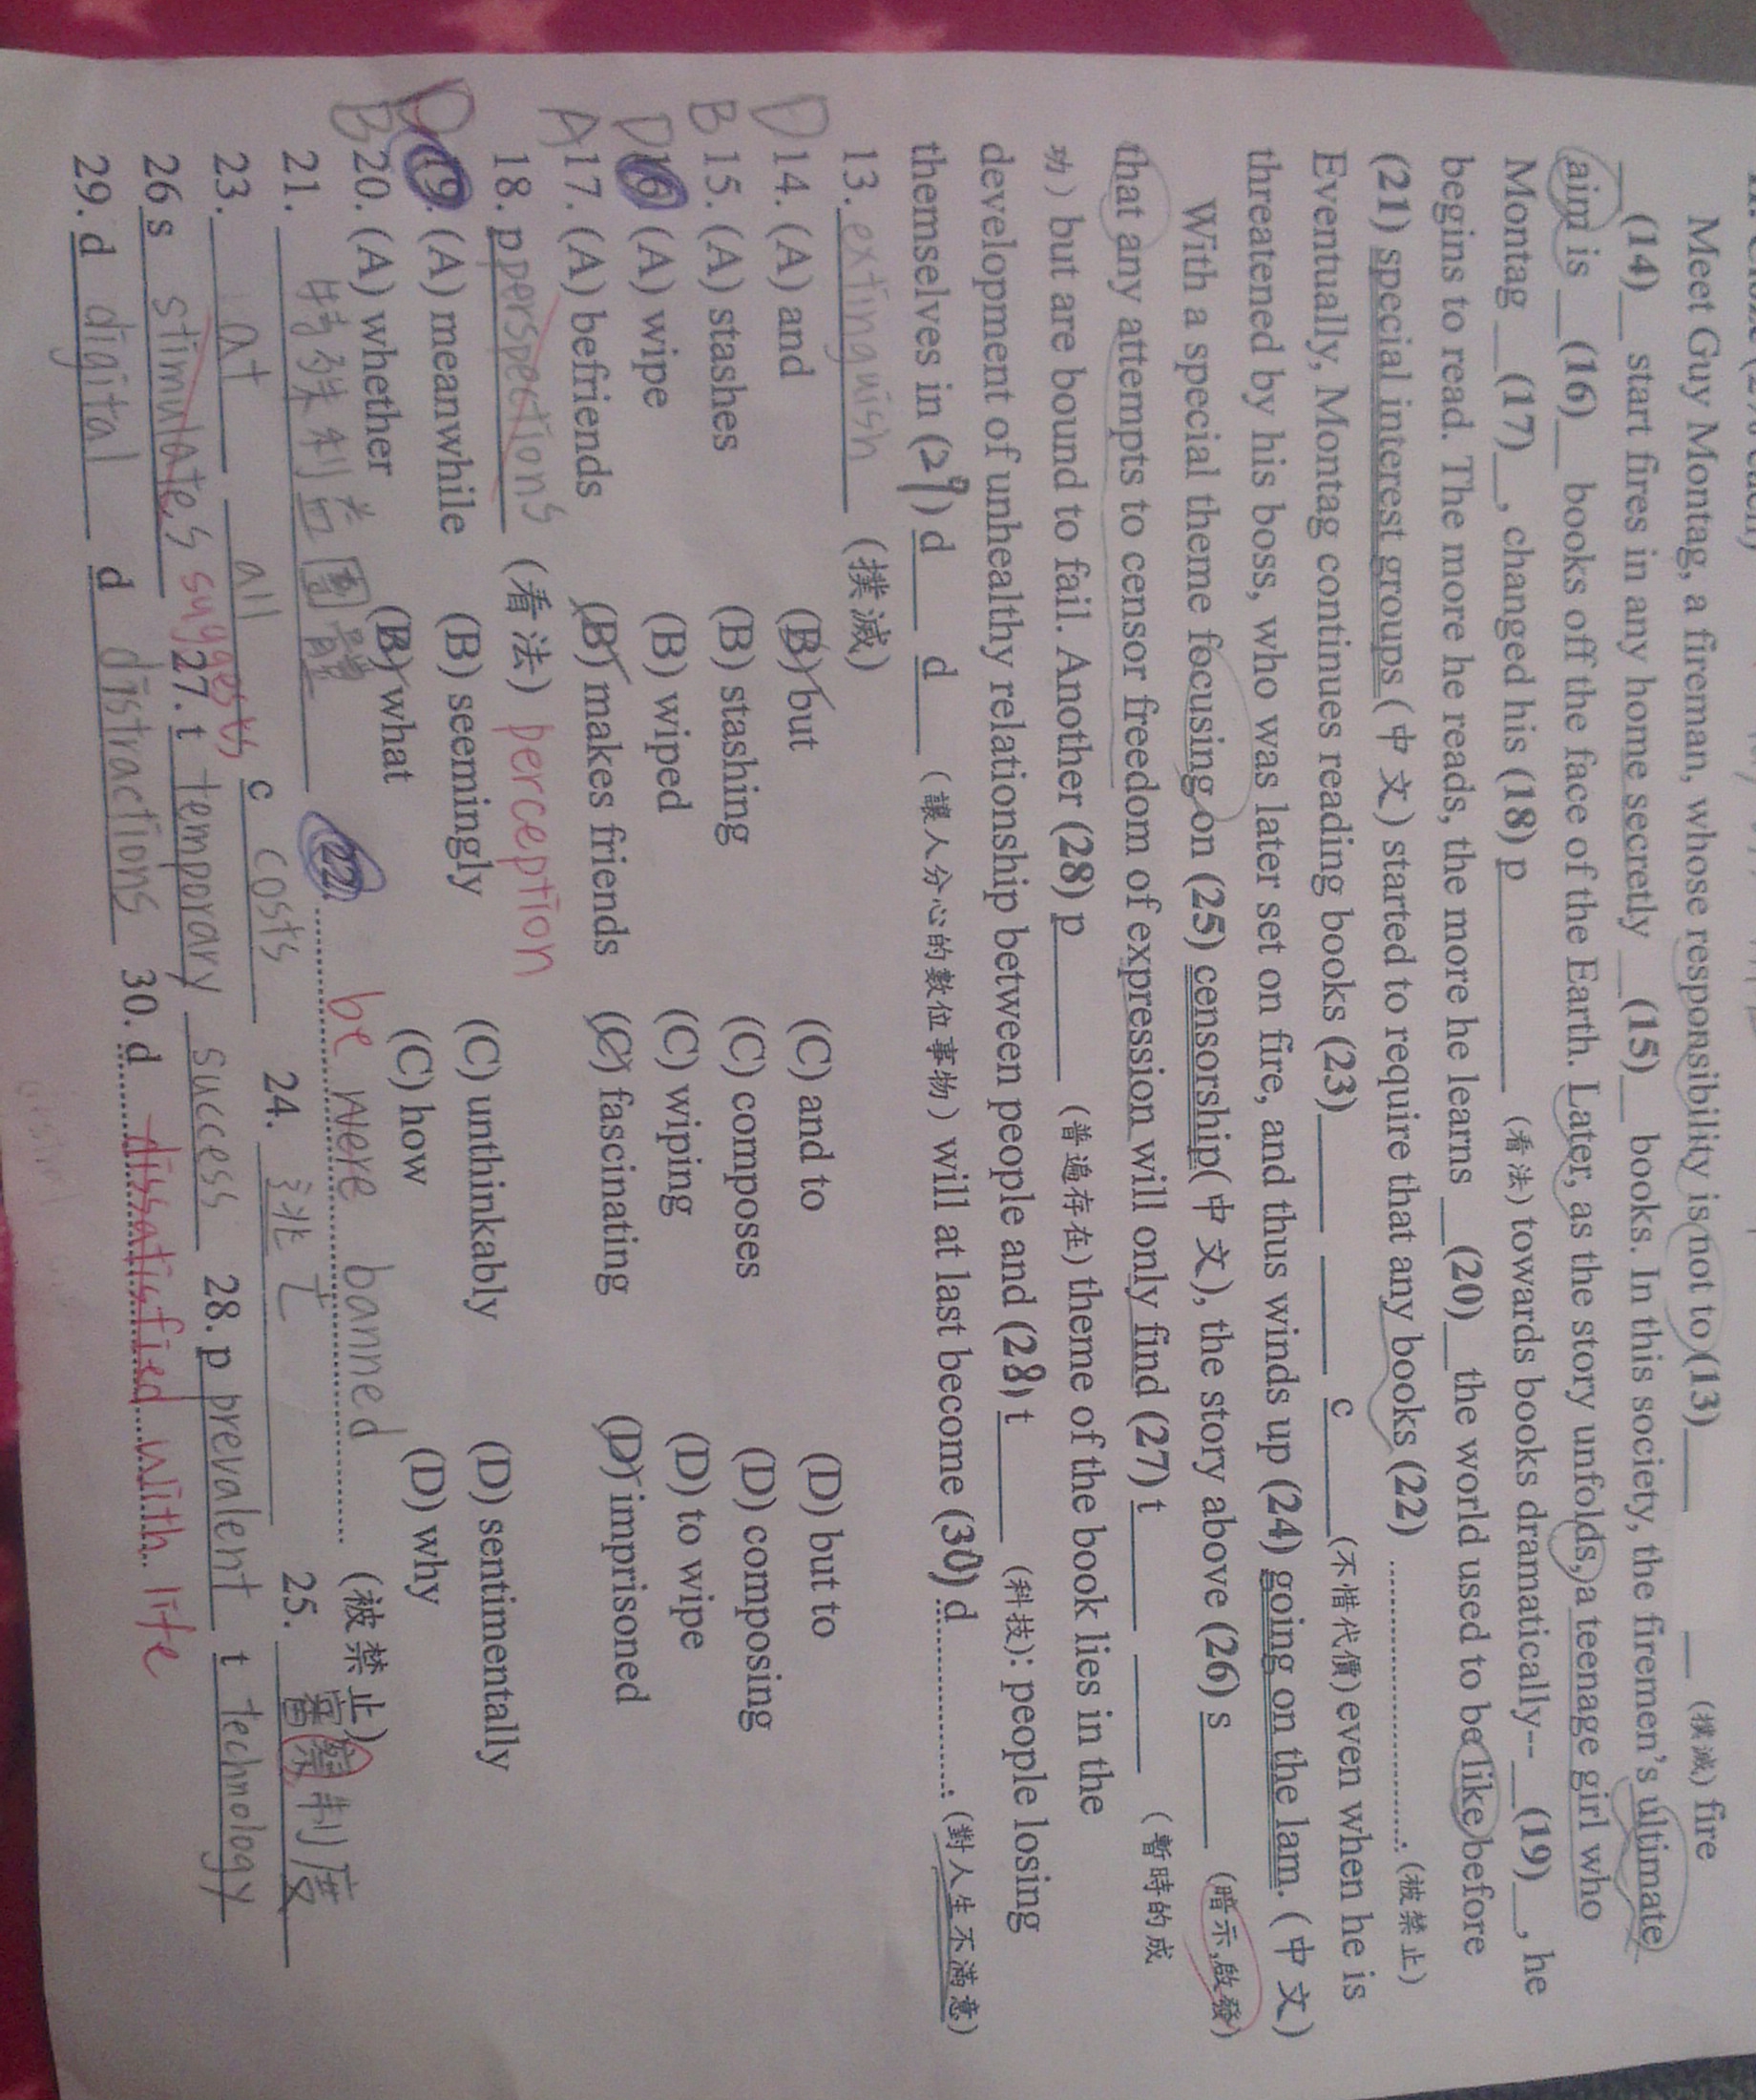 Meet Guy Montag, a fireman, whose responsibility is not to (13)____ ____ (撲滅) fire
__(14)__ start fires in any home secretly __(15)__ books. In this society, the firemen's ultimate
aim is __(16)__ books off the face of the Earth. Later, as the story unfolds, a teenage girl who
Montag __(17)__, changed his (18) p________ (看法) towards books dramatically--__(19)__, he
begins to read. The more he reads, the more he learns __(20)__ the world used to be like before
(21) special interest groups (中文) started to require that any books (22) ....................: (被禁止)
Eventually, Montag continues reading books (23)____ ____ c____(不惜代價) even when he is
threatened by his boss, who was later set on fire, and thus winds up (24) going on the lam. (中文)
With a special theme focusing on (25) censorship(中文), the story above (26) s____ (暗示,啟發)
that any attempts to censor freedom of expression will only find (27) t____ ____ (暫時的成
功) but are bound to fail. Another (28) p____ (普遍存在) theme of the book lies in the
development of unhealthy relationship between people and (28) t____ (科技): people losing
themselves in (29) d____ d____ (讓人分心的數位事物) will at last become (30) d...............: (對人生不滿意)
13. extinguish (撲滅)
D 14. (A) and (B) but (C) and to (D) but to
B 15. (A) stashes (B) stashing (C) composes (D) composing
D 16 (A) wipe (B) wiped (C) wiping (D) to wipe
A 17. (A) befriends (B) makes friends (C) fascinating (D) imprisoned
18. p perspections (看法) perception
D 19. (A) meanwhile (B) seemingly (C) unthinkably (D) sentimentally
B 20. (A) whether (B) what (C) how (D) why
21. 特殊利益團體 22. be were banned (被禁止)
23. at all c costs 24. 逃亡 25. 審察制度
26 s stimulates suggests 27. t temporary success 28. p prevalent t technology
29. d digital d distractions 30. d dissatisfied with life